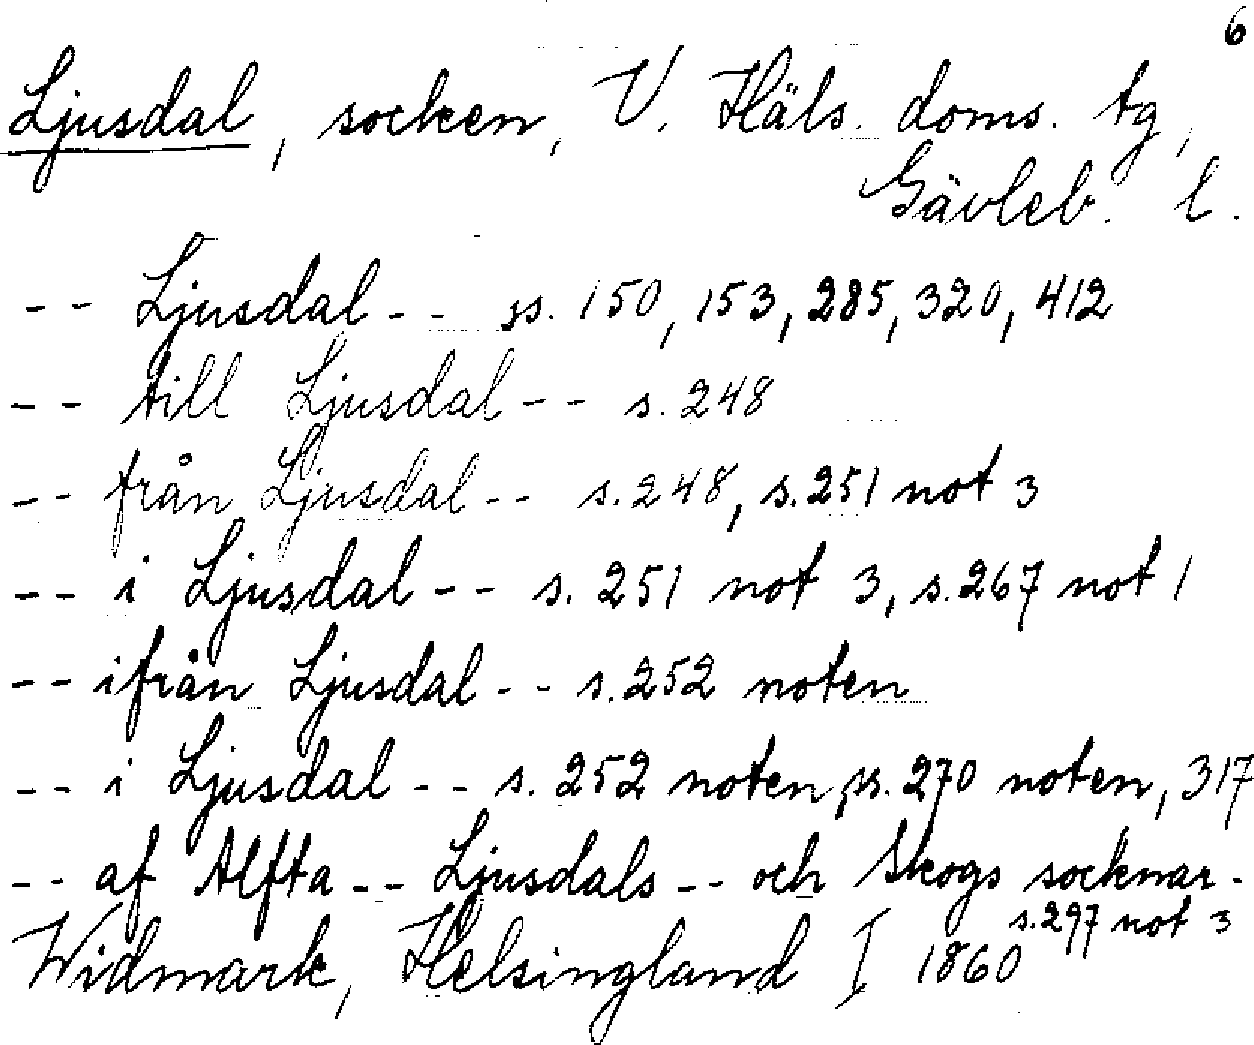 6
Ljusdal, socken, V. Häls. doms. tg,
Gävleb. l.
-- Ljusdal -- ss. 150, 153, 285, 320, 412
-- till Ljusdal -- s. 248
-- från Ljusdal -- s. 248, s. 251 not 3
-- i Ljusdal -- s. 251 not 3, s. 267 not 1
-- ifrån Ljusdal -- s. 252 noten
-- i Ljusdal -- s. 252 noten, ss. 270 noten, 317
-- af Alfta -- Ljusdals -- och Skogs socknar -
s. 297 not 3
Widmark, Helsingland I 1860